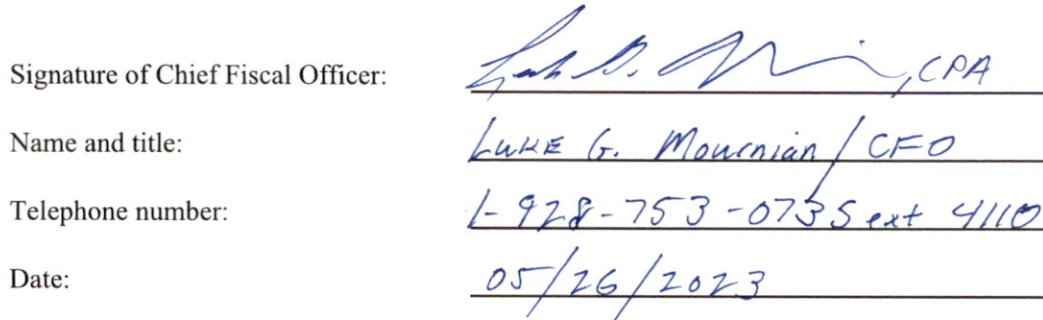 Signature of Chief Fiscal Officer: , CPA
Name and title: Luke G. Mournian / CFO
Telephone number: 1-928-753-0735 ext 4110
Date: 05/26/2023